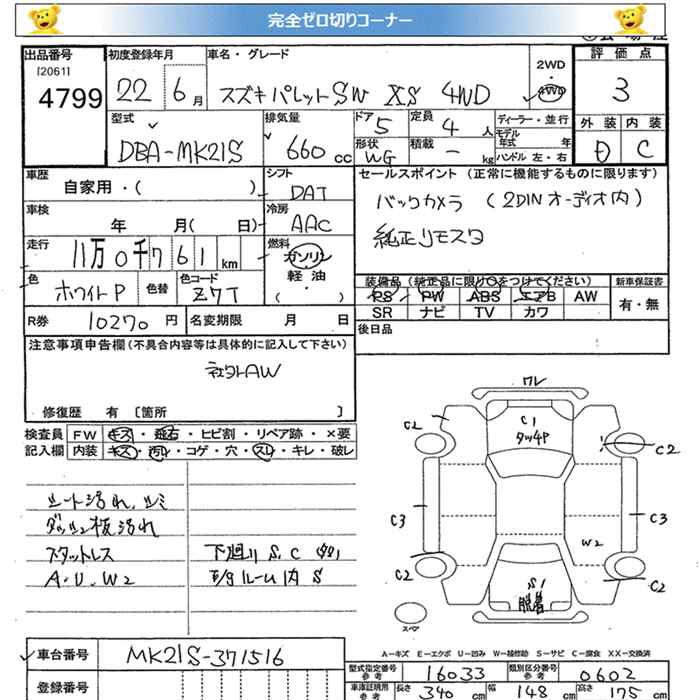 完全ゼロ切りコーナー
出品番号 初度登録年月 車名・グレード 2WD・4WD 評価点
[2061]
4799 22 6月 スズキパレットSW XS 4WD 3
型式 排気量 ドア 5 定員 4人 ディーラー・並行 外装 内装
DBA-MK21S 660cc 形状 WG 積載 - kg モデル年式 年 D C
ハンドル 左・右
車歴 自家用・( ) シフト DAT セールスポイント (正常に機能するものに限ります)
車検 年 月( 日) 冷房 AAC バックカメラ (2DINオーディオ内)
走行 11万0千761km 燃料 ガソリン 純正リモスタ
軽油
( )
色 ホワイトP 色替 色コード Z7T 装備品 (純正品に限り○をつけてください) 新車保証書
PS PW ABS エアB AW 有・無
SR ナビ TV カワ
R券 10270円 名変期限 月 日 後日品
注意事項申告欄 (不具合内容等は具体的に記入して下さい)
社外AW
修復歴 有 [箇所 ]
検査員 FW キズ・飛石・ヒビ割・リペア跡・×要
記入欄 内装 キズ・汚れ・コゲ・穴・スレ・キレ・破レ
シート汚れ、シミ
ダッシュ板汚れ
スタットレス 下廻り S、C
A・U・W2 E/gルーム内 S
ワレ
C1
C2 C2
C3 C3
W2
C2 C2
S1
脱着
スペア
A−キズ E−エクボ U−凹み W−補修跡 S−サビ C−腐食 XX−交換済
車台番号 MK21S-371516
登録番号
型式指定番号 参考 16033 類別区分番号 参考 0602
車庫証明用 参考 長さ 340cm 幅 148cm 高さ 175cm